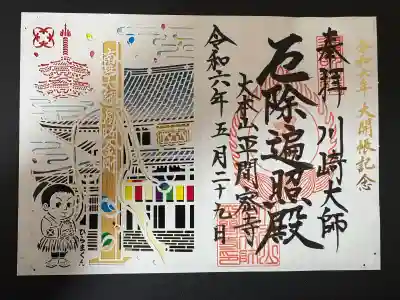 令和六年 大開帳記念
奉拝 川崎大師
厄除遍照殿
大本山平間寺
令和六年五月二十九日